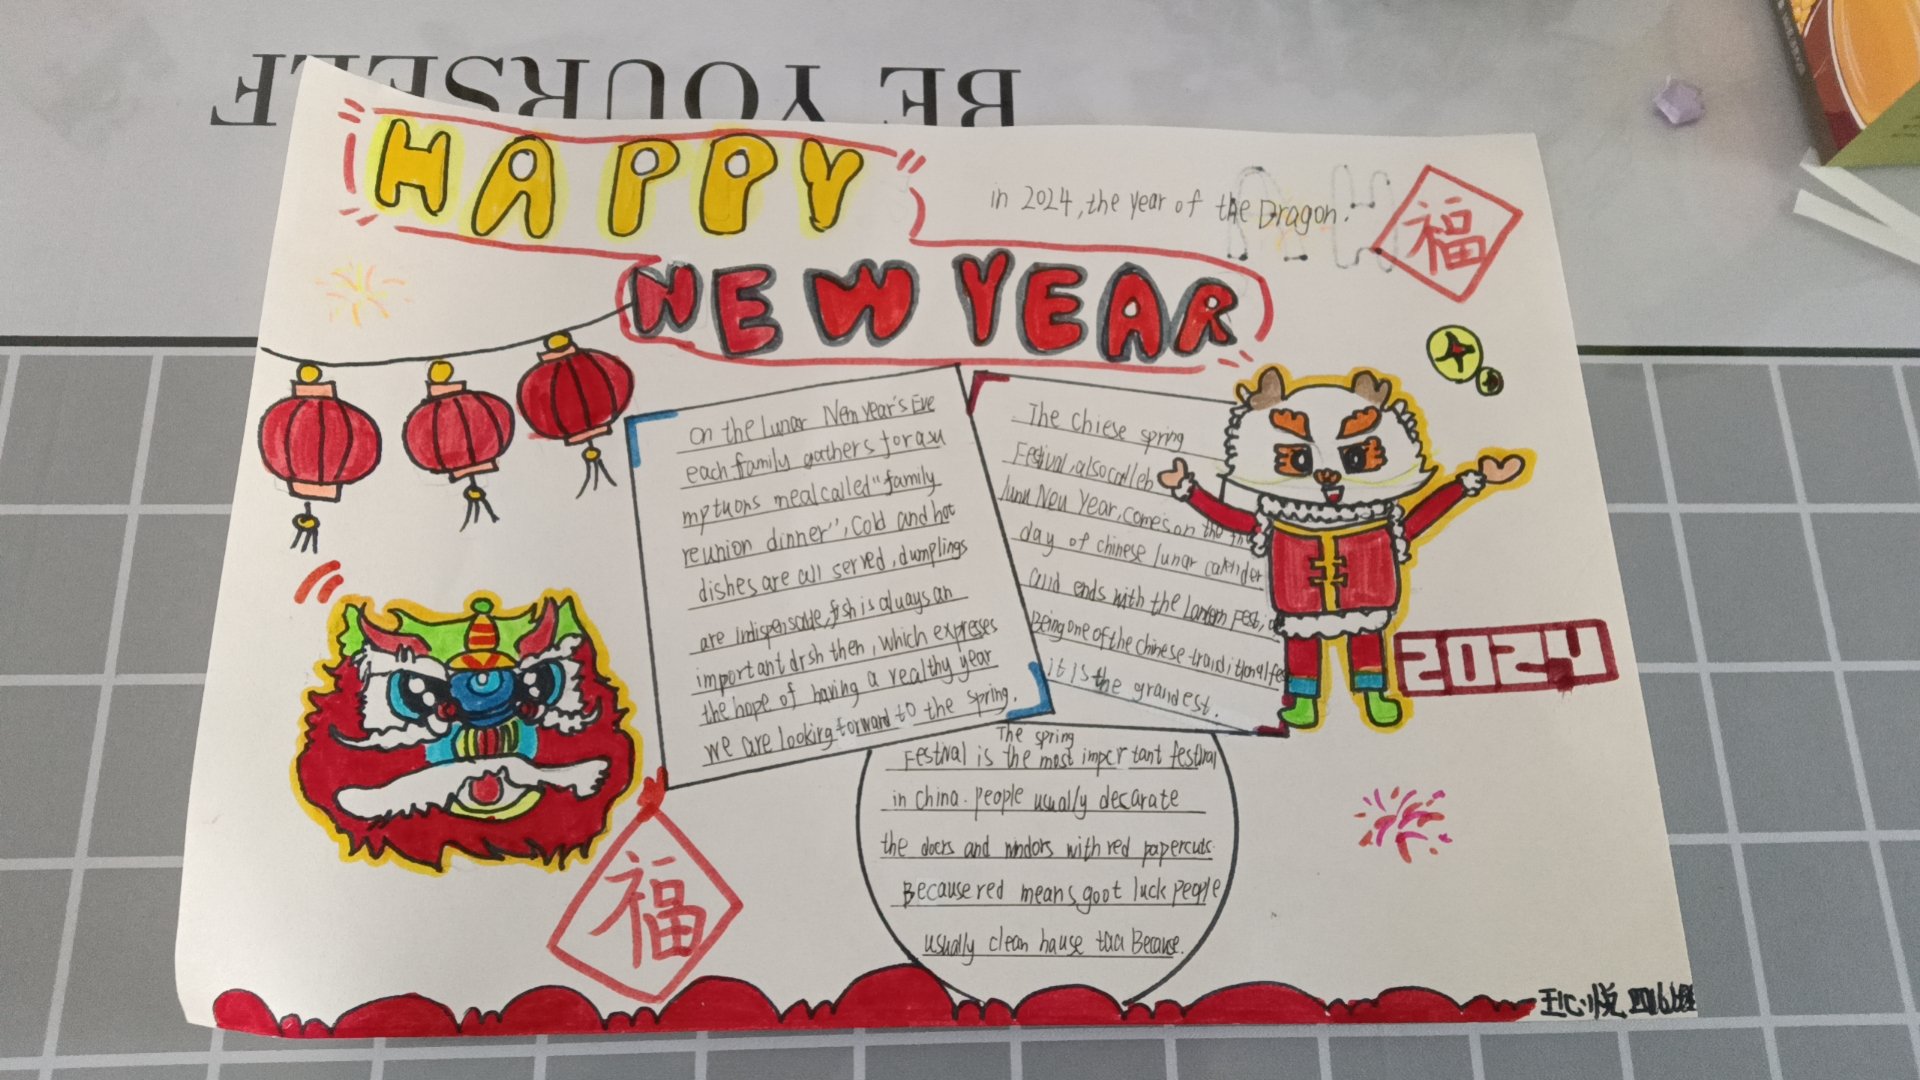 BE YOURSELF
HAPPY
in 2024, the year of the Dragon.
福
NEW YEAR
on the lunar New year's Eve
each family gathers for a su
mptuons meal called "family
reunion dinner", cold and hot
dishes are all served, dumplings
are indispensable, fish is always an
important dish then, which expresses
the hope of having a wealthy year
we are looking forward to the spring.
The Chiese spring
Festival, also calleb
lunar New Year, comes on the
day of chinese lunar
and ends with the Lantern Fest
Being one of the chinese traditional fes
it is the grandest.
2024
The spring
Festival is the most important festival
in china. people usually decarate
the doors and windors with red papercuts
Because red means goot luck people
usually clean hause too Because.
福
王心悦